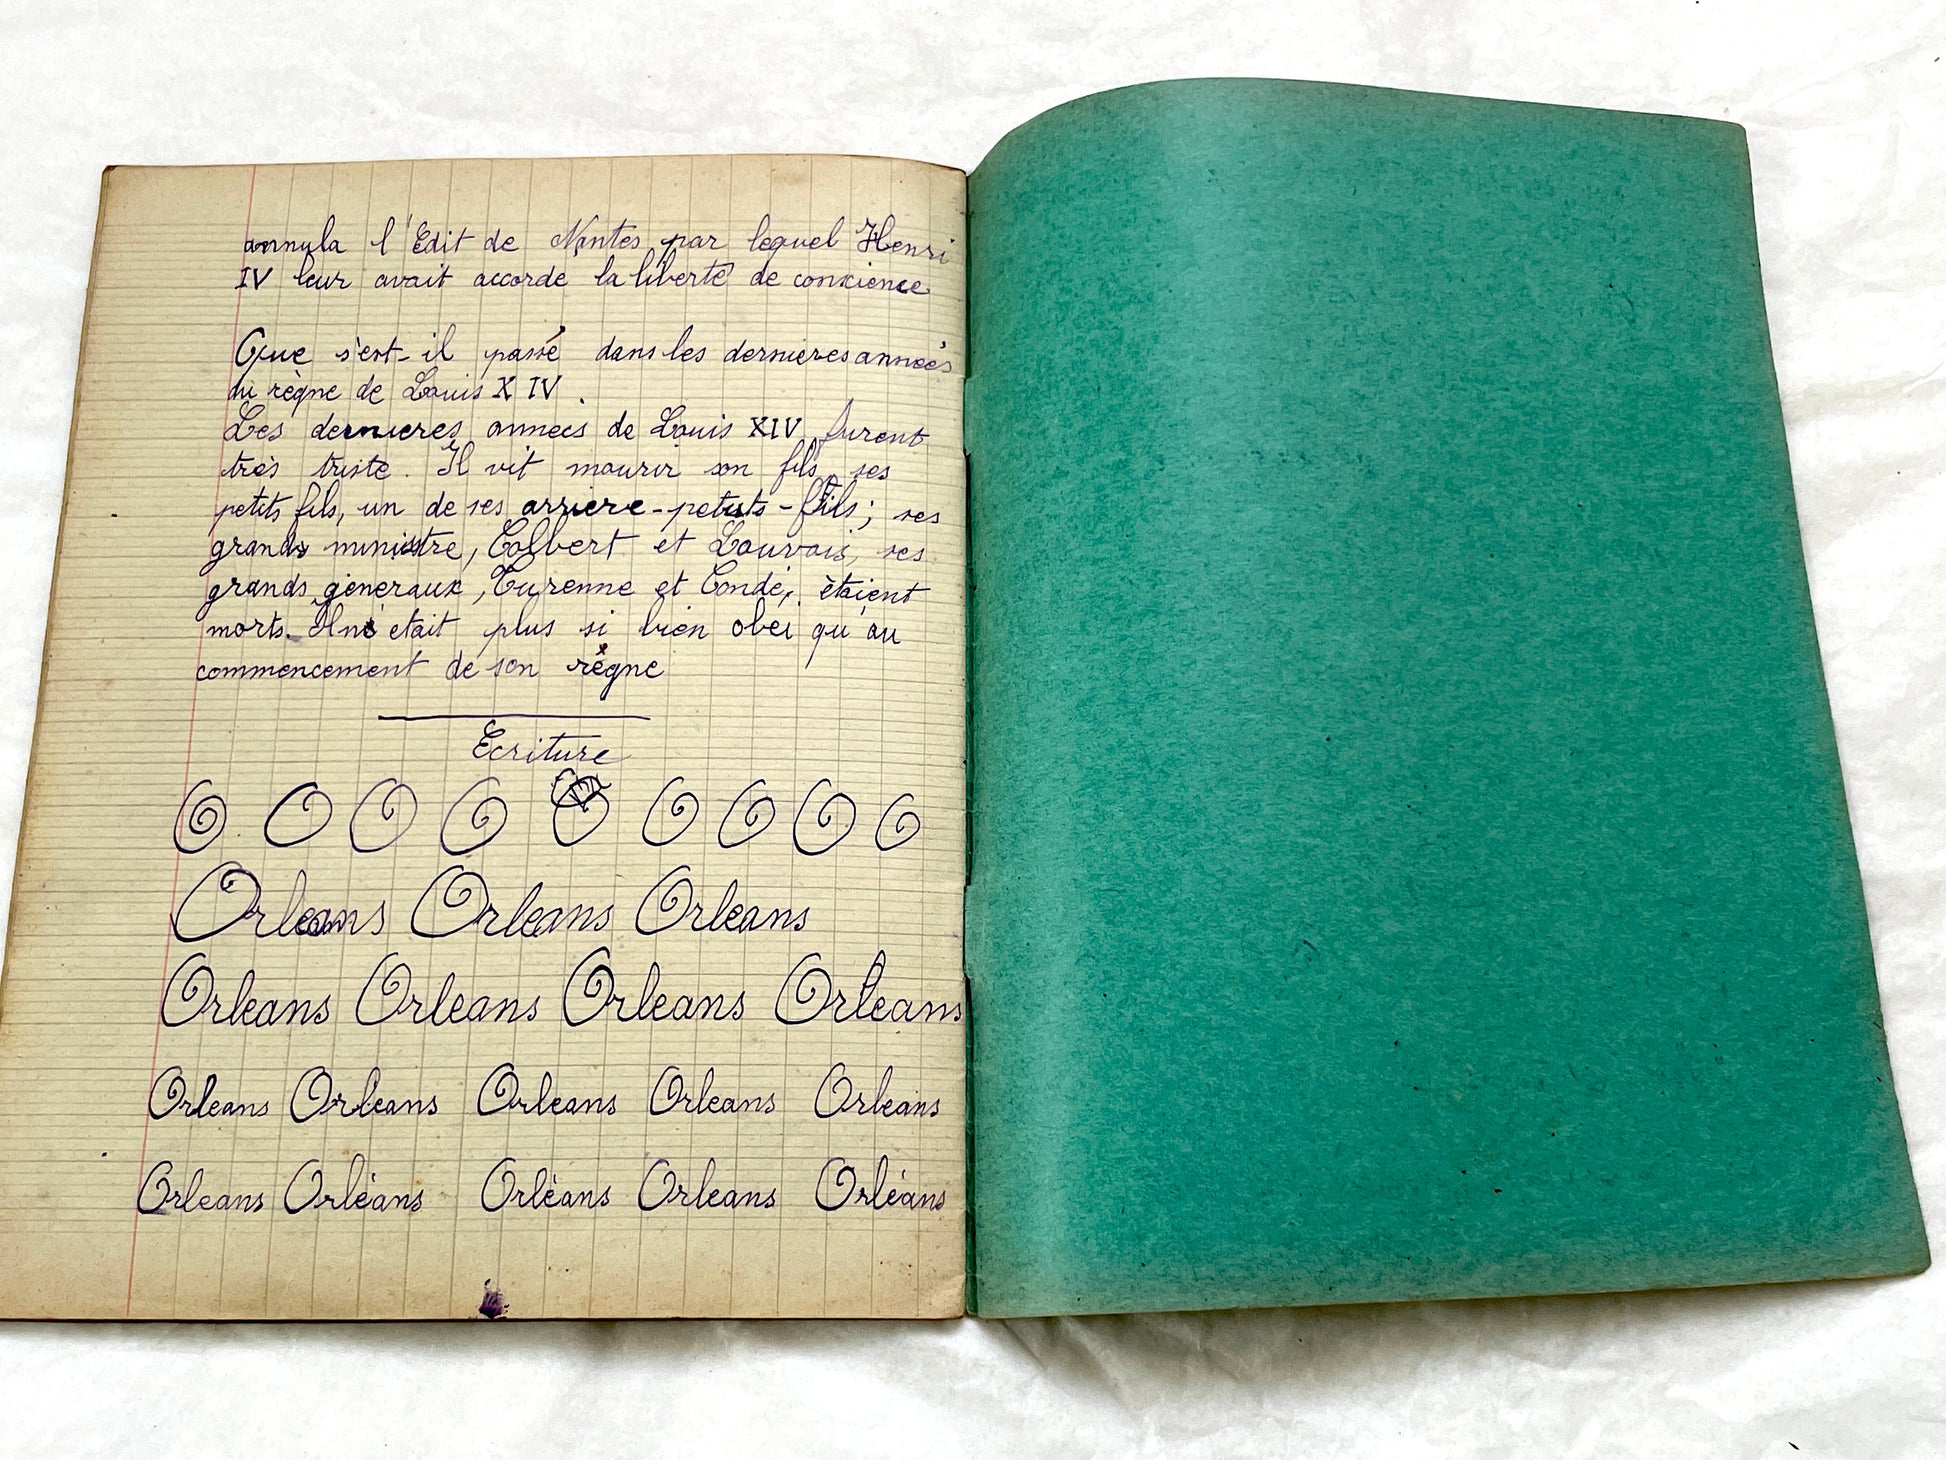 annula l'Edit de Nantes par lequel Henri
IV leur avait accorde la liberté de conscience
Que s'est-il passé dans les dernieres années
du règne de Louis XIV.
Les dernieres annees de Louis XIV furent
très triste. Il vit mourir son fils, ses
petits fils, un de ses arriere-petits-fils; ses
grands ministre, Colbert et Louvois, ses
grands géneraux, Turenne et Condé, étaient
morts. Il ne était plus si bien obei qu'au
commencement de son règne
Ecriture
O O O O O O O O O
Orleans Orleans Orleans
Orleans Orleans Orleans Orleans
Orleans Orleans Orleans Orleans Orleans
Orleans Orléans Orléans Orleans Orléans